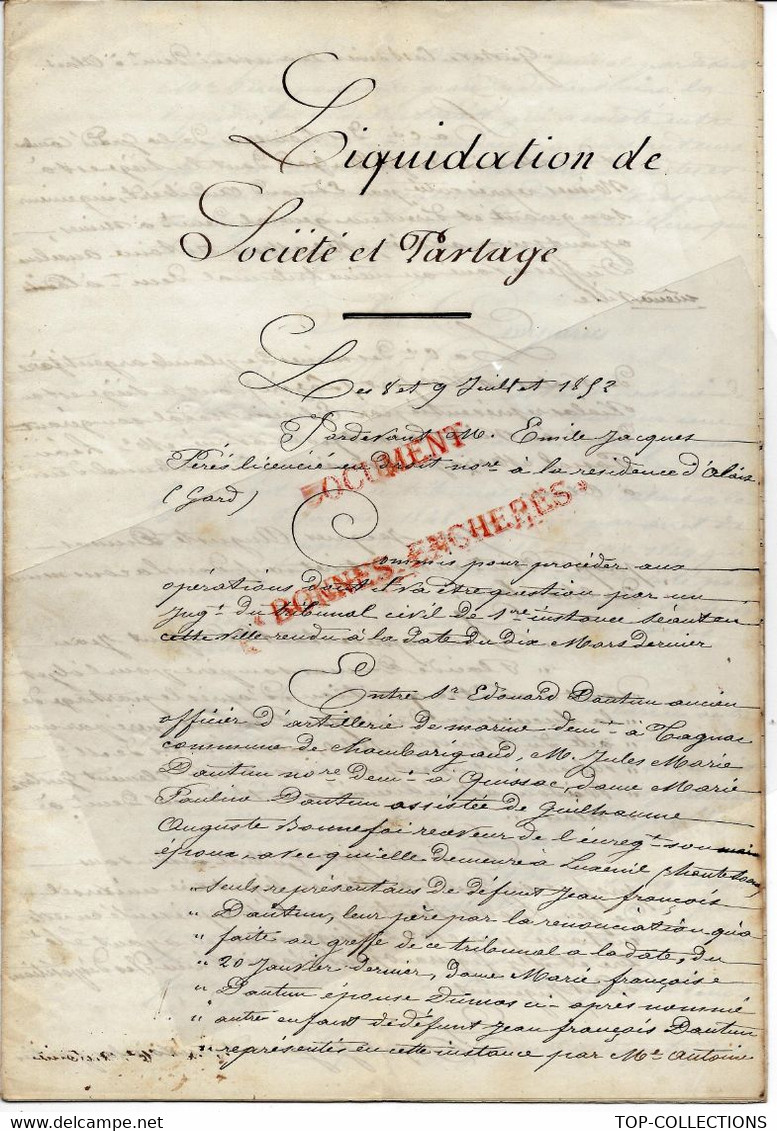 Liquidation de
Société et Partage
Les 8 et 9 Juillet 1852
Pardevant M. Emile Jacques
Pérès licencié en droit nore à la residence d'Alais
(Gard)
DOCUMENT
BONNES ENCHERES
Commis pour procéder aux
opérations dont il va etre question par un
Jugt du tribunal civil de 1re instance séant en
cette ville rendu à la date du dix Mars dernier
Entre Sr Edouard Dautun ancien
officier d'artillerie de marine demt à Tagnac
commune de Chamborigaud, M. Jules Marie
Dautun nore demt à Quissac, dame Marie
Pauline Dautun assistée de Guilhaume
Auguste Bonnefoi receveur de l'enregt son
époux, avec qui elle demeure à Luxeuil (haute Saone)
seuls représentans de défunt Jean françois
" Dautun, leur père par la renonciation qu'a
" faite au greffe de ce tribunal à la date, du
" 20 Janvier dernier, dame Marie françoise
" Dautun épouse Dumas ci-après nommé
" autre enfant de défunt Jean françois Dautun
" représentés en cette instance par Me Antoine
TOP-COLLECTIONS